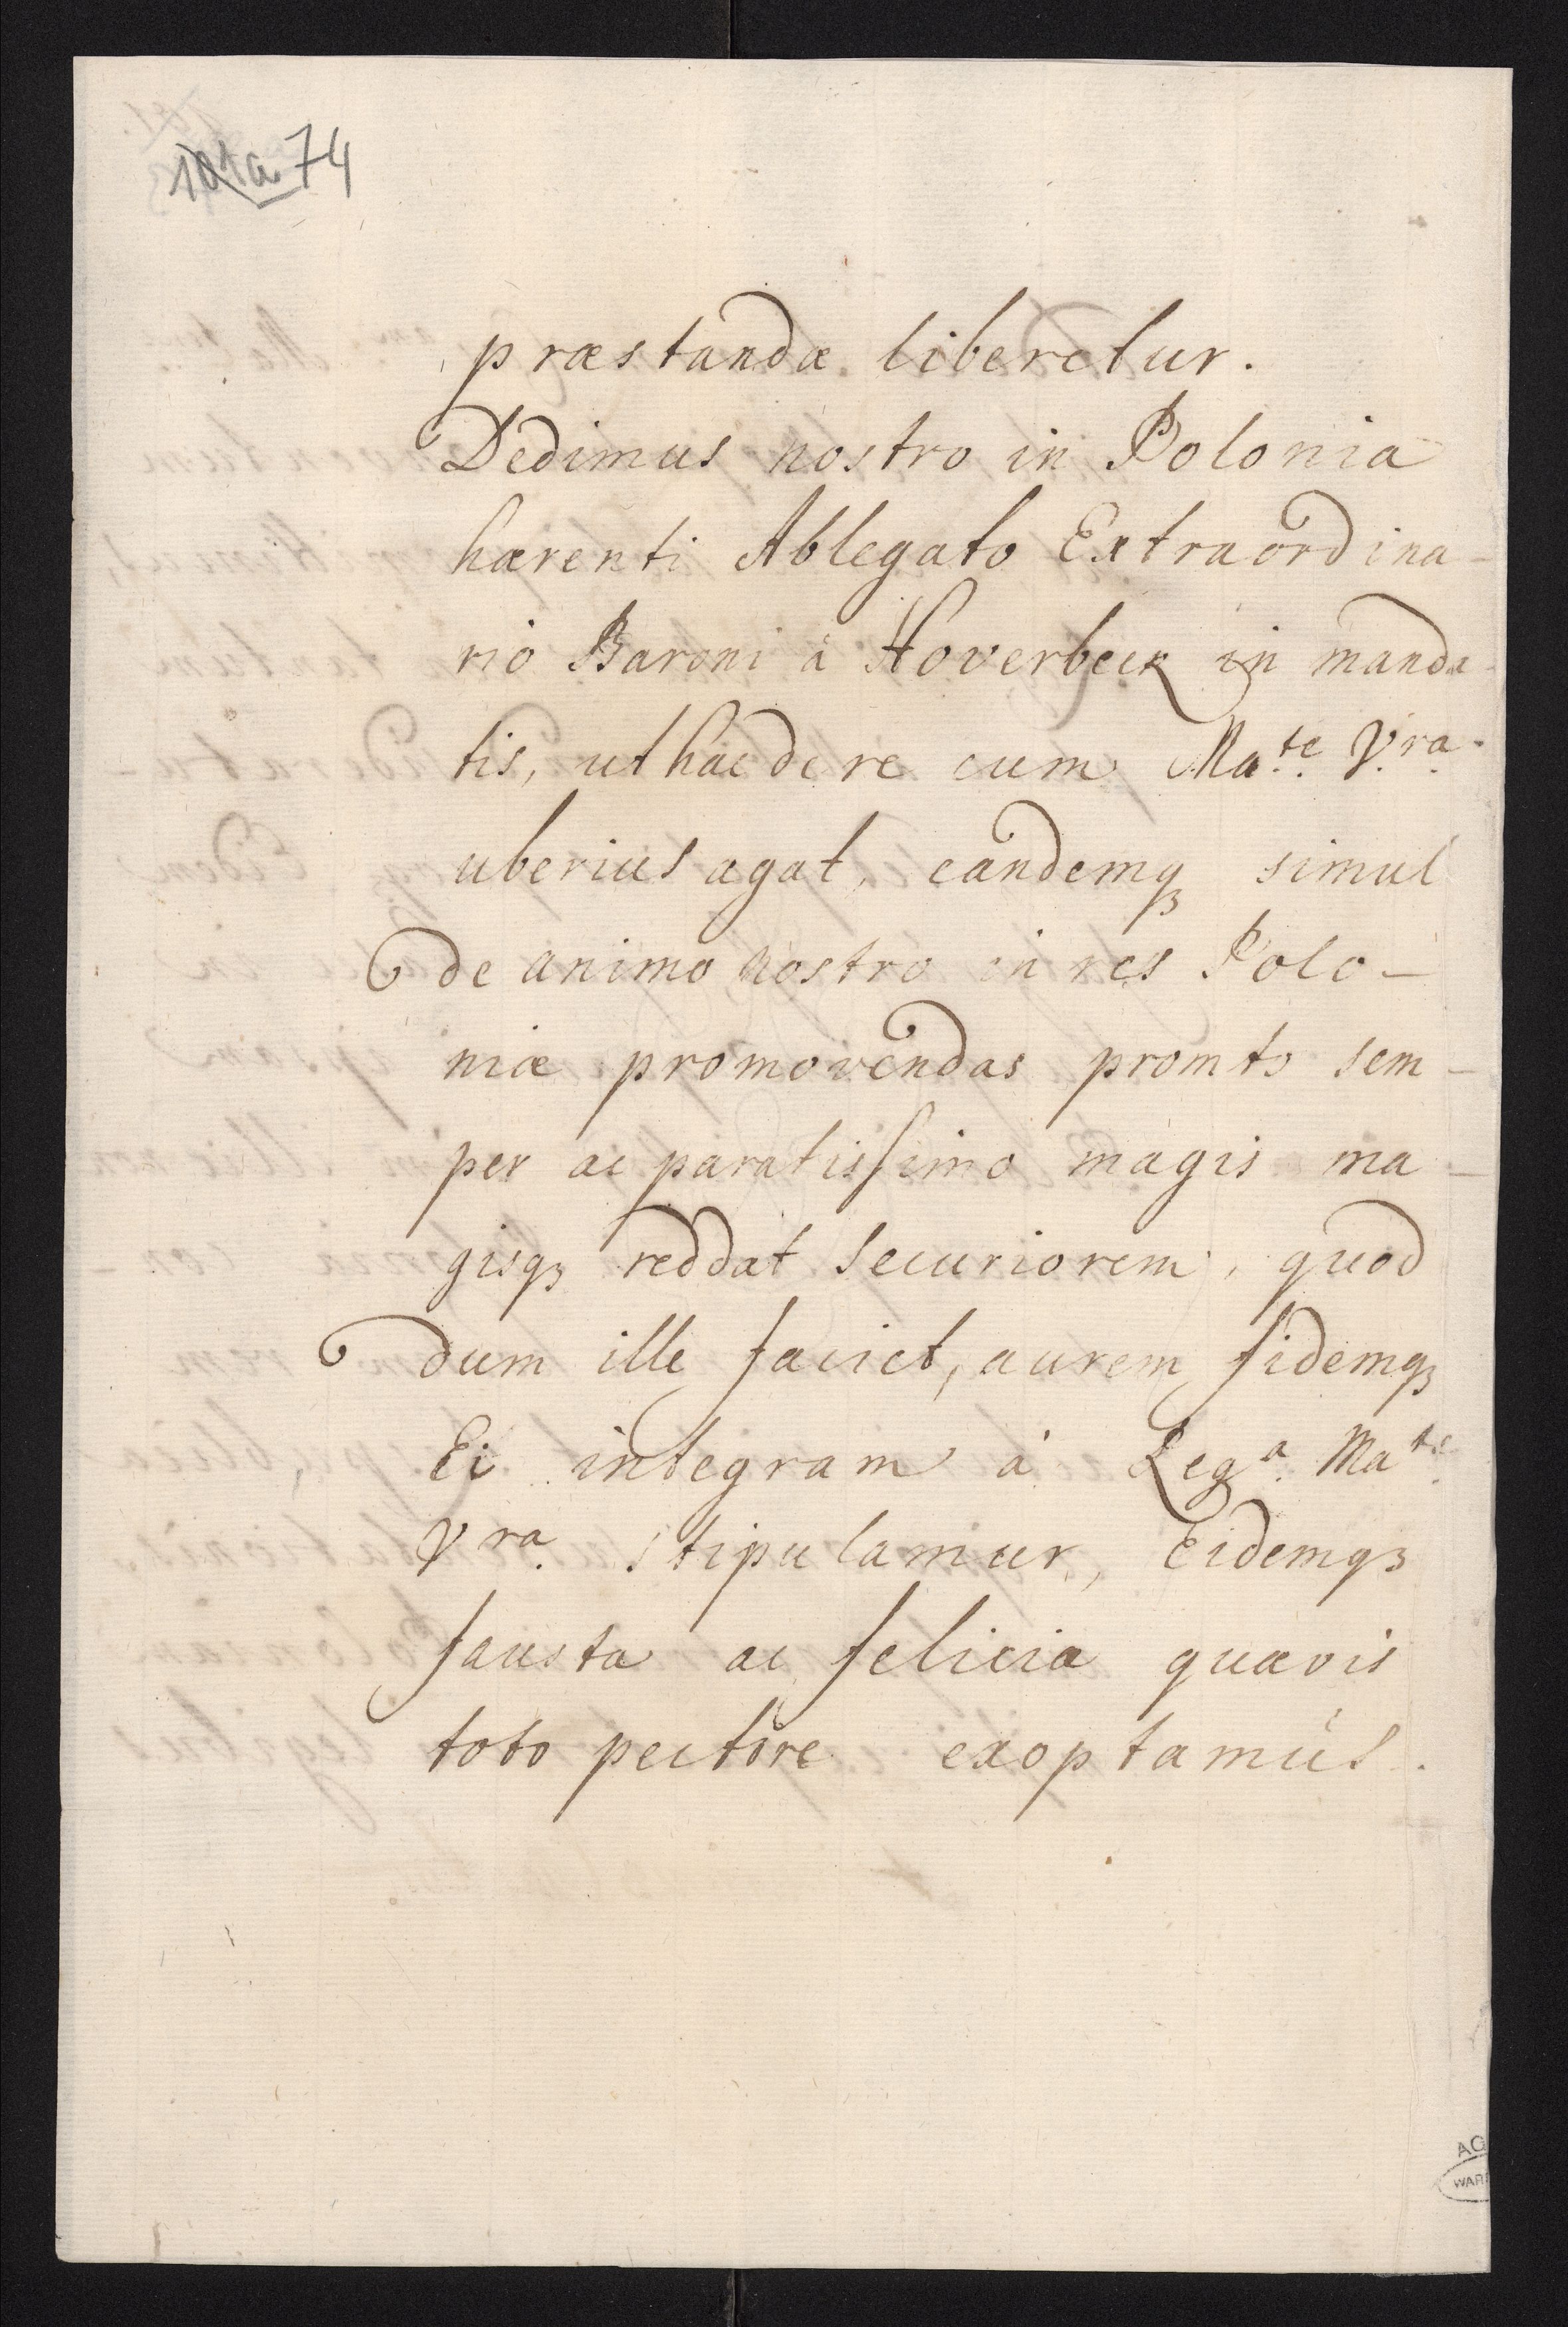 101a 74
præstandæ liberetur.
Dedimus nostro in Polonia
hærenti Ablegato Extraordina-
rio Baroni à Hoverbeck in manda-
tis, ut hac de re cum Ma.te V.ra
uberius agat, eandemq3 simul
de animo nostro in res Polo-
niæ promovendas promto sem-
per ac paratissimo magis ma-
gisq3 reddat securiorem, quod
dum ille faciet, aurem fidemq3
Ei integram à Reg.a Ma.te
V.ra stipulamur, Eidemq3
fausta ac felicia quævis
toto pectore exoptamus.
AG
WAR